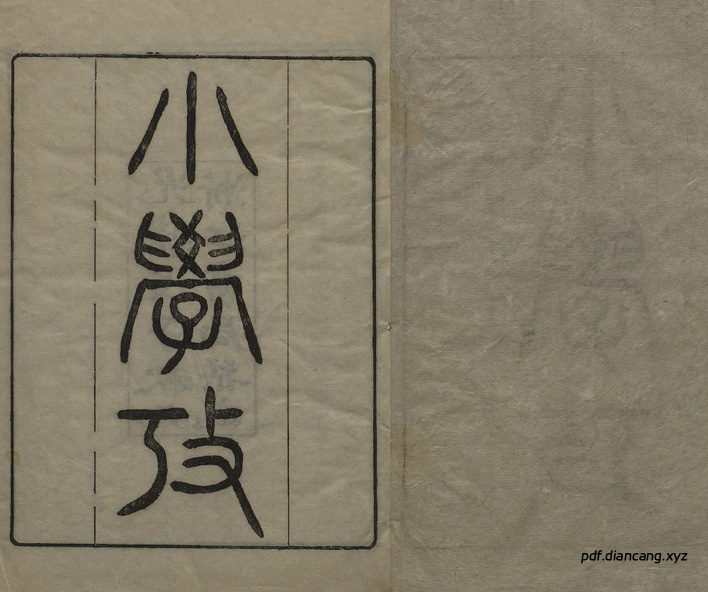 小學攷
pdf.diancang.xyz